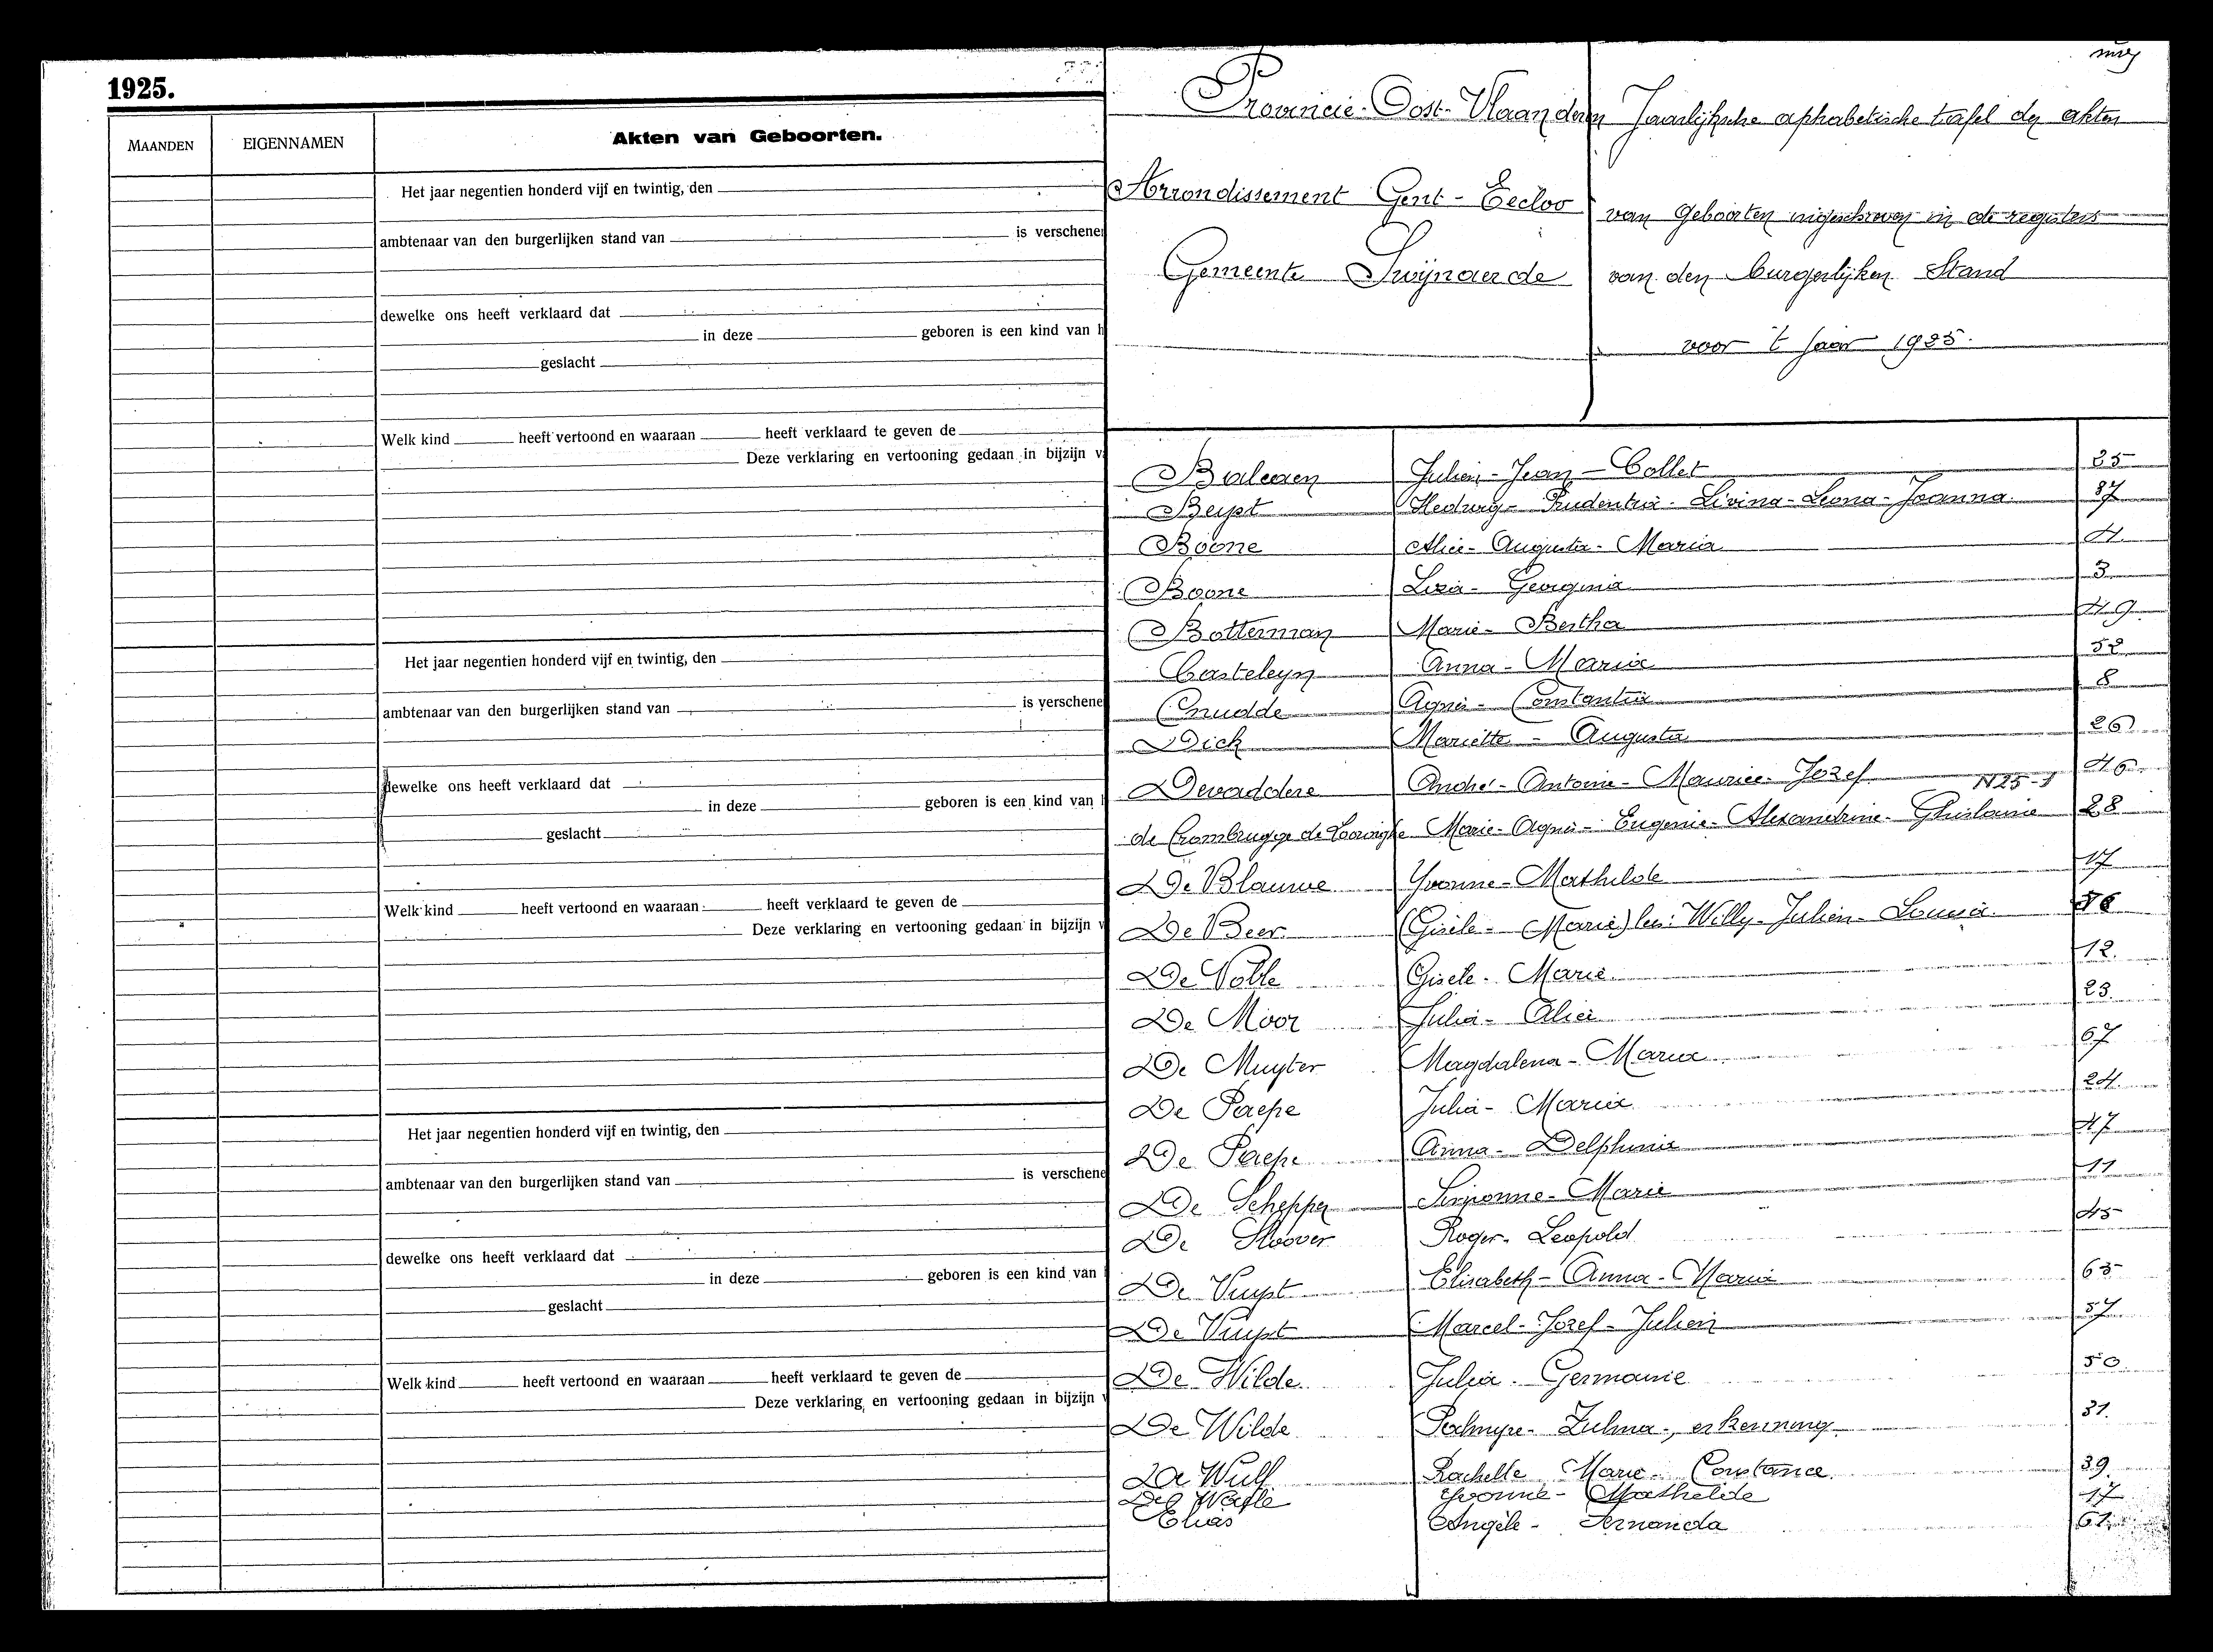 1925.
MAANDEN EIGENNAMEN Akten van Geboorten.
Het jaar negentien honderd vijf en twintig, den
ambtenaar van den burgerlijken stand van is verschenen
dewelke ons heeft verklaard dat
in deze geboren is een kind van h
geslacht
Welk kind heeft vertoond en waaraan heeft verklaard te geven de
Deze verklaring en vertooning gedaan in bijzijn v
Het jaar negentien honderd vijf en twintig, den
ambtenaar van den burgerlijken stand van is verschene
dewelke ons heeft verklaard dat
in deze geboren is een kind van
geslacht
Welk kind heeft vertoond en waaraan heeft verklaard te geven de
Deze verklaring en vertooning gedaan in bijzijn v
Het jaar negentien honderd vijf en twintig, den
ambtenaar van den burgerlijken stand van is verschene
dewelke ons heeft verklaard dat
in deze geboren is een kind van
geslacht
Welk kind heeft vertoond en waaraan heeft verklaard te geven de
Deze verklaring en vertooning gedaan in bijzijn v
Provincie Oost-Vlaanderen
Arrondissement Gent - Eecloo
Gemeente Swijnaerde
Jaarlijksche alphabetische tafel der akten
van Geboorten ingeschreven in de registers
van den burgerlijken Stand
voor 't jaar 1925.
Julien - Jean - Collet 25
Beyst Hedwig - Prudentia - Livina - Leona - Joanna 37
Boone Alice - Augusta - Maria 4
Boone Georgina 3
Botterman Marie - Bertha 49
Casteleyn Anna - Maria 52
Cnudde Agnes - Constantia 8
Dick Mariette - Augusta 26
Devaddere André - Antoine - Maurice - Jozef 46
N 25-1
de Crombrugge de Looringhe Marie - Agnès - Eugenie - Alexandrine - Ghislaine 28
De Blauwe Yvonne - Mathilde 17
De Beer (Gisèle - Marie) lees: Willy - Julien - Louisa 56
De Noble Gisèle - Marie 12
De Moor Julia - Alice 23
De Muyter Magdalena - Maria 67
De Paepe Julia - Maria 24
De Paepe Anna - Delphina 47
De Schepper Simonne - Marie 11
De Stoover Roger - Leopold 45
De Vuyst Elisabeth - Anna - Maria 65
De Vuyst Marcel - Jozef - Julien 57
De Wilde Julia - Germanie 50
De Wilde Palmyre - Zulma -, erkenning 31
De Wulf Rachelle Marie Constance 39
Yvonne - Mathilde 17
Elias Angèle - Fernanda 61